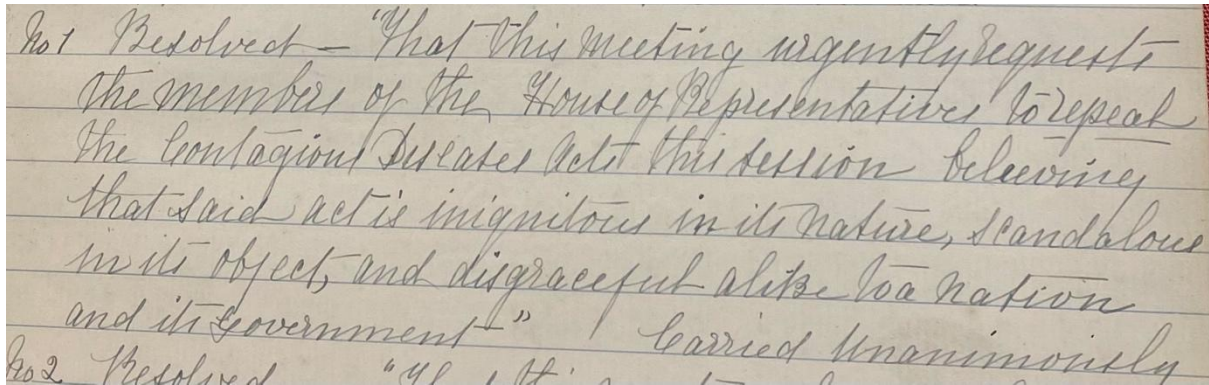 No 1 Resolved – "That this meeting urgently requests
the members of the House of Representatives to repeal
the Contagious Diseases Acts this session believing
that said act is iniquitous in its nature, scandalous
in its object, and disgraceful alike to a nation
and its Government" Carried Unanimously
No 2 Resolved "That this